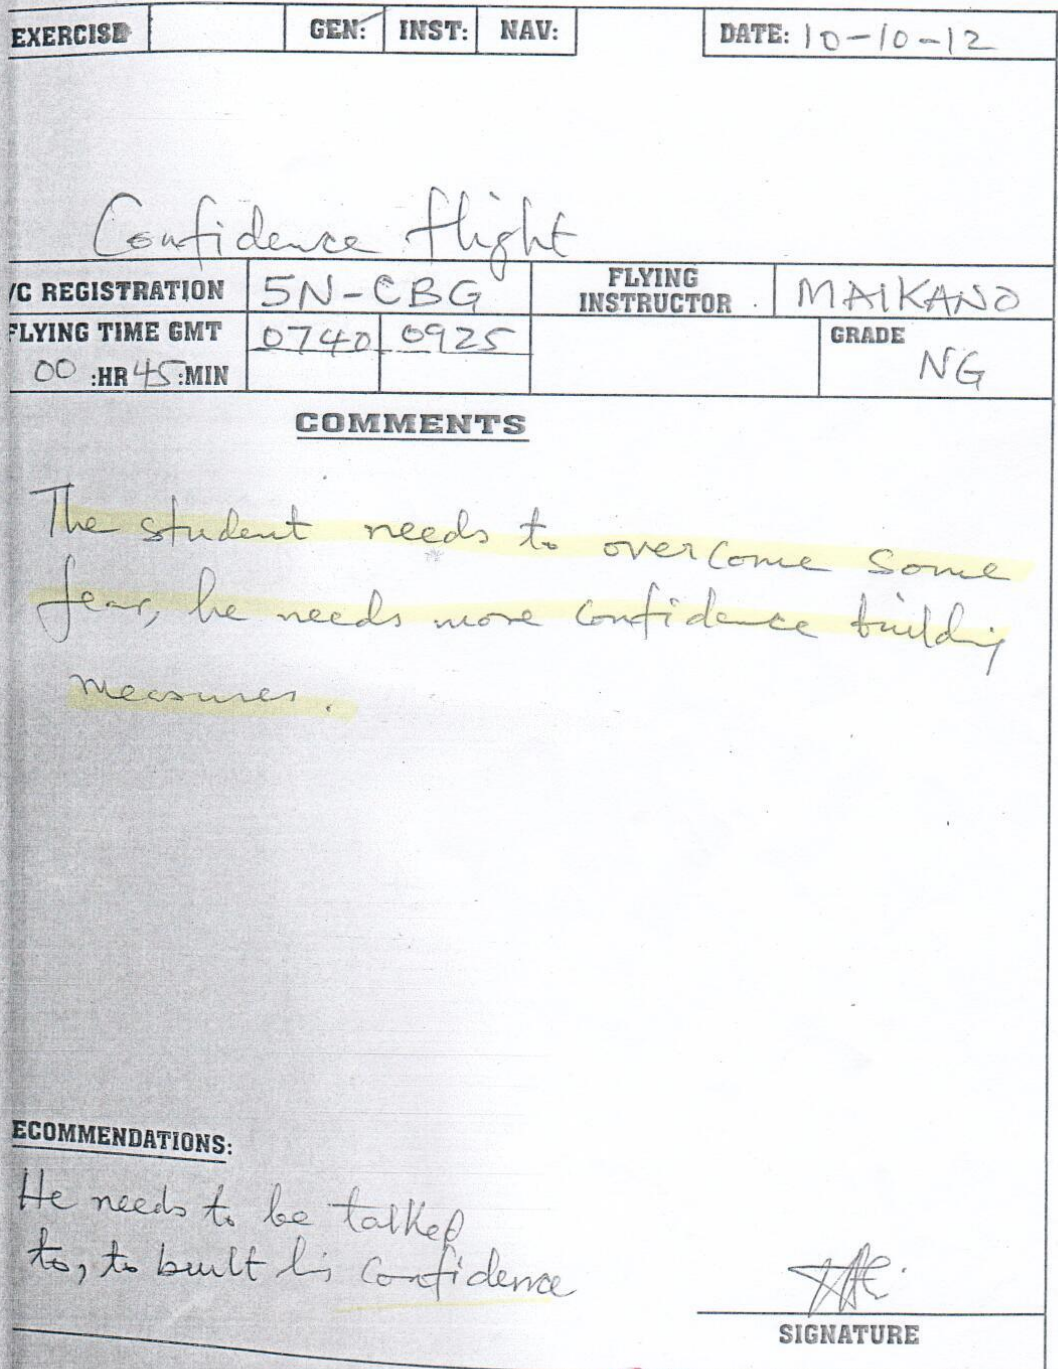 EXERCISE GEN: INST: NAV: DATE: 10-10-12
Confidence flight
/C REGISTRATION 5N-CBG FLYING INSTRUCTOR MAIKANO
FLYING TIME GMT 0740 0925 GRADE NG
00 :HR 45 :MIN
COMMENTS
The student needs to overcome some
fear, he needs more confidence building
measures.
ECOMMENDATIONS:
He needs to be talked
to, to built his confidence
SIGNATURE